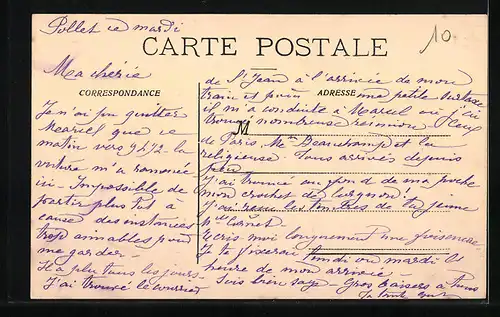 Pollet ce mardi
10
CARTE POSTALE
Ma chérie
CORRESPONDANCE
ADRESSE
M
Je n'ai pu quitter
Marcel que ce
matin vers 9h1/2. La
voiture m'a ramenée
ici - Impossible de
partir plus tôt à
cause des instances
trop aimables pour
me garder -
Il a plu tous les jours
J'ai trouvé le courrier
de St Jean à l'arrivée de mon
train et puis une petite
il m'a conduite à Marcel où j'ai
trouvé nombreuse réunion
de Paris, Me Deauchamp et la
religieuse. Tous arrivés depuis
peu
J'ai trouvé au fond de ma poche
mon crochet de
J'ai reçu les timbres de la jeune
Melle Cornet
Ecris moi longuement
Je te fixerai lundi ou mardi
heure de mon arrivée -
Sois bien sage - Gros baisers à tous